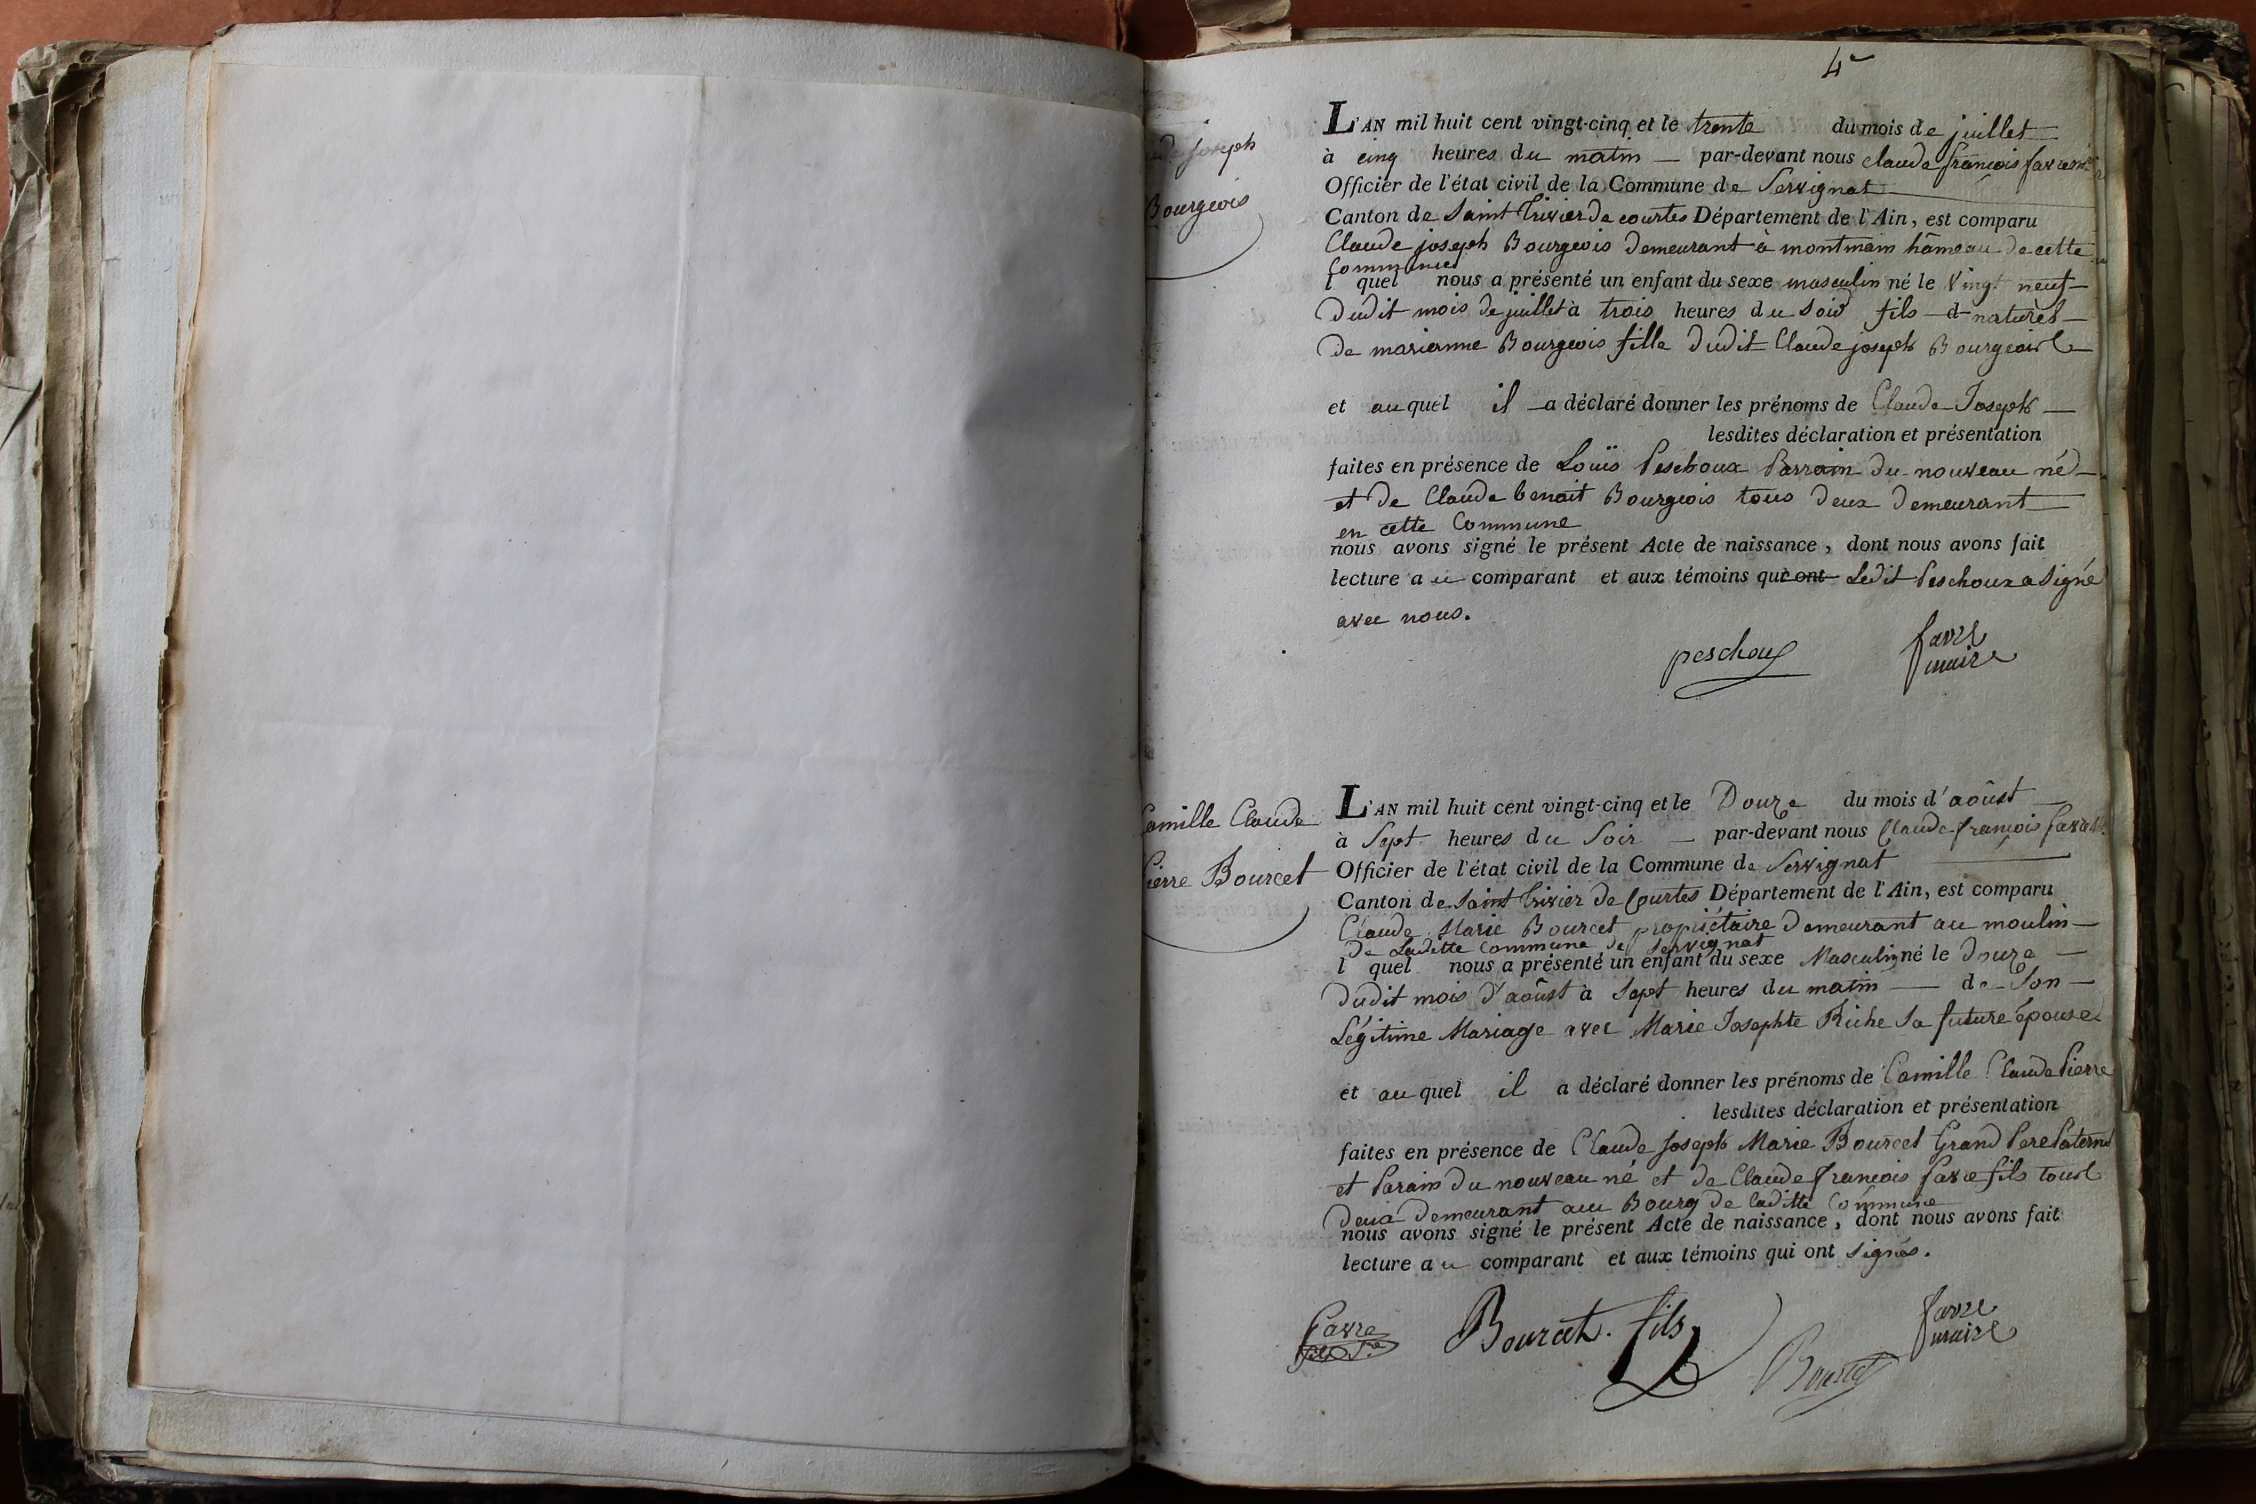 4e
Joseph
Bourgeois
L'AN mil huit cent vingt-cinq et le trente du mois de juillet
à cinq heures du matin par-devant nous claude françois favre
Officier de l'état civil de la Commune de Servignat
Canton de Saint Trivier de courtes Département de l'Ain, est comparu
Claude joseph Bourgeois demeurant à montmain hâmeau de cette
Commune
l quel nous a présenté un enfant du sexe masculin né le vingt neuf
dudit mois de juillet à trois heures du soir fils d naturel
de marianne Bourgeois fille dudit Claude joseph Bourgeois
et au quel il a déclaré donner les prénoms de Claude Joseph
lesdites déclaration et présentation
faites en présence de Louïs Peschoux Parrain du nouveau né
et de Claude benoit Bourgeois tous deux demeurant
en cette Commune
nous avons signé le présent Acte de naissance, dont nous avons fait
lecture au comparant et aux témoins qui ont Ledit Peschoux a signé
avec nous.
peschoux
favre
maire
Camille Claude
Pierre Bourcet
L'AN mil huit cent vingt-cinq et le Douze du mois d'aoûst
à Sept heures du Soir par-devant nous Claude françois favre
Officier de l'état civil de la Commune de Servignat
Canton de Saint Trivier de Courtes Département de l'Ain, est comparu
Claude Marie Bourcet propriétaire demeurant au moulin
de Laditte Commune de Servignat
l quel nous a présenté un enfant du sexe Masculin né le douze
dudit mois d'aoûst à Sept heures du matin de Son
Légitime Mariage avec Marie Josephte Riche Sa future épouse
et au quel il a déclaré donner les prénoms de Camille Claude Pierre
lesdites déclaration et présentation
faites en présence de Claude Joseph Marie Bourcet Grand Pere Paternel
et Parain du nouveau né et de Claude françois favre fils tous
deux demeurant au Bourg de laditte Commune
nous avons signé le présent Acte de naissance, dont nous avons fait
lecture au comparant et aux témoins qui ont signés.
Favre
Bourcet. fils
Bourcet
favre
maire